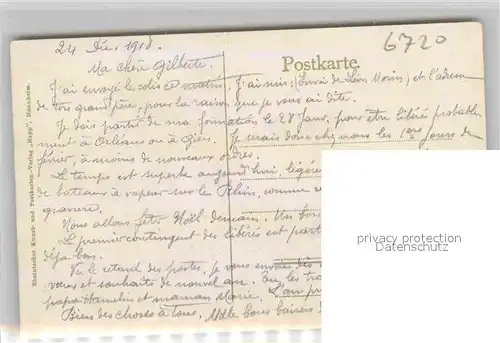 24 Déc. 1918.
6720
Postkarte.
Ma chère Gilberte.
J'ai envoyé le colis ce matin, j'ai mis (Envoi de Léon Morin) et l'adresse
de ton grand père, pour la raison que je vous ai dite.
Je dois partir de ma formation le 28 Janv. pour être libéré probable
ment à Orléans ou à Gien. Je serais donc chez nous les 1ers jours de
février, à moins de nouveaux ordres.
Le temps est superbe aujourd'hui, légère
de bateaux à vapeur sur le Rhin, comme
gravure.
Nous allons fêter Noël demain. Un bon
Le premier contingent des libérés est parti
déjà bon.
Vu le retard des postes, je vous envoie des
vœux et souhaits de nouvel an.
papa Hamelin et maman Marie.
Bien des choses à tous. Mille bons baisers
Rheinischer Kunst- und Postkarten-Verlag „Hepp“, Mannheim.
privacy protection
Datenschutz